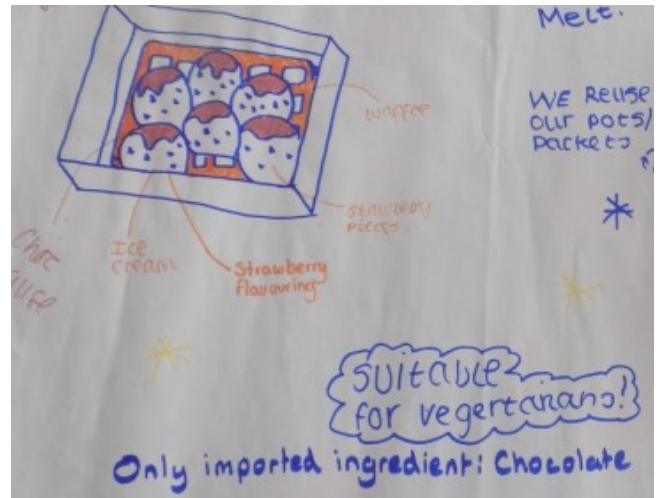 Melt.
WE Reuse
our pots/
packets
waffle
strawberry
pieces
Choc
Ice
cream
Strawberry
flavouring
SUITABLE
for vegertarians!
Only imported ingredient: Chocolate